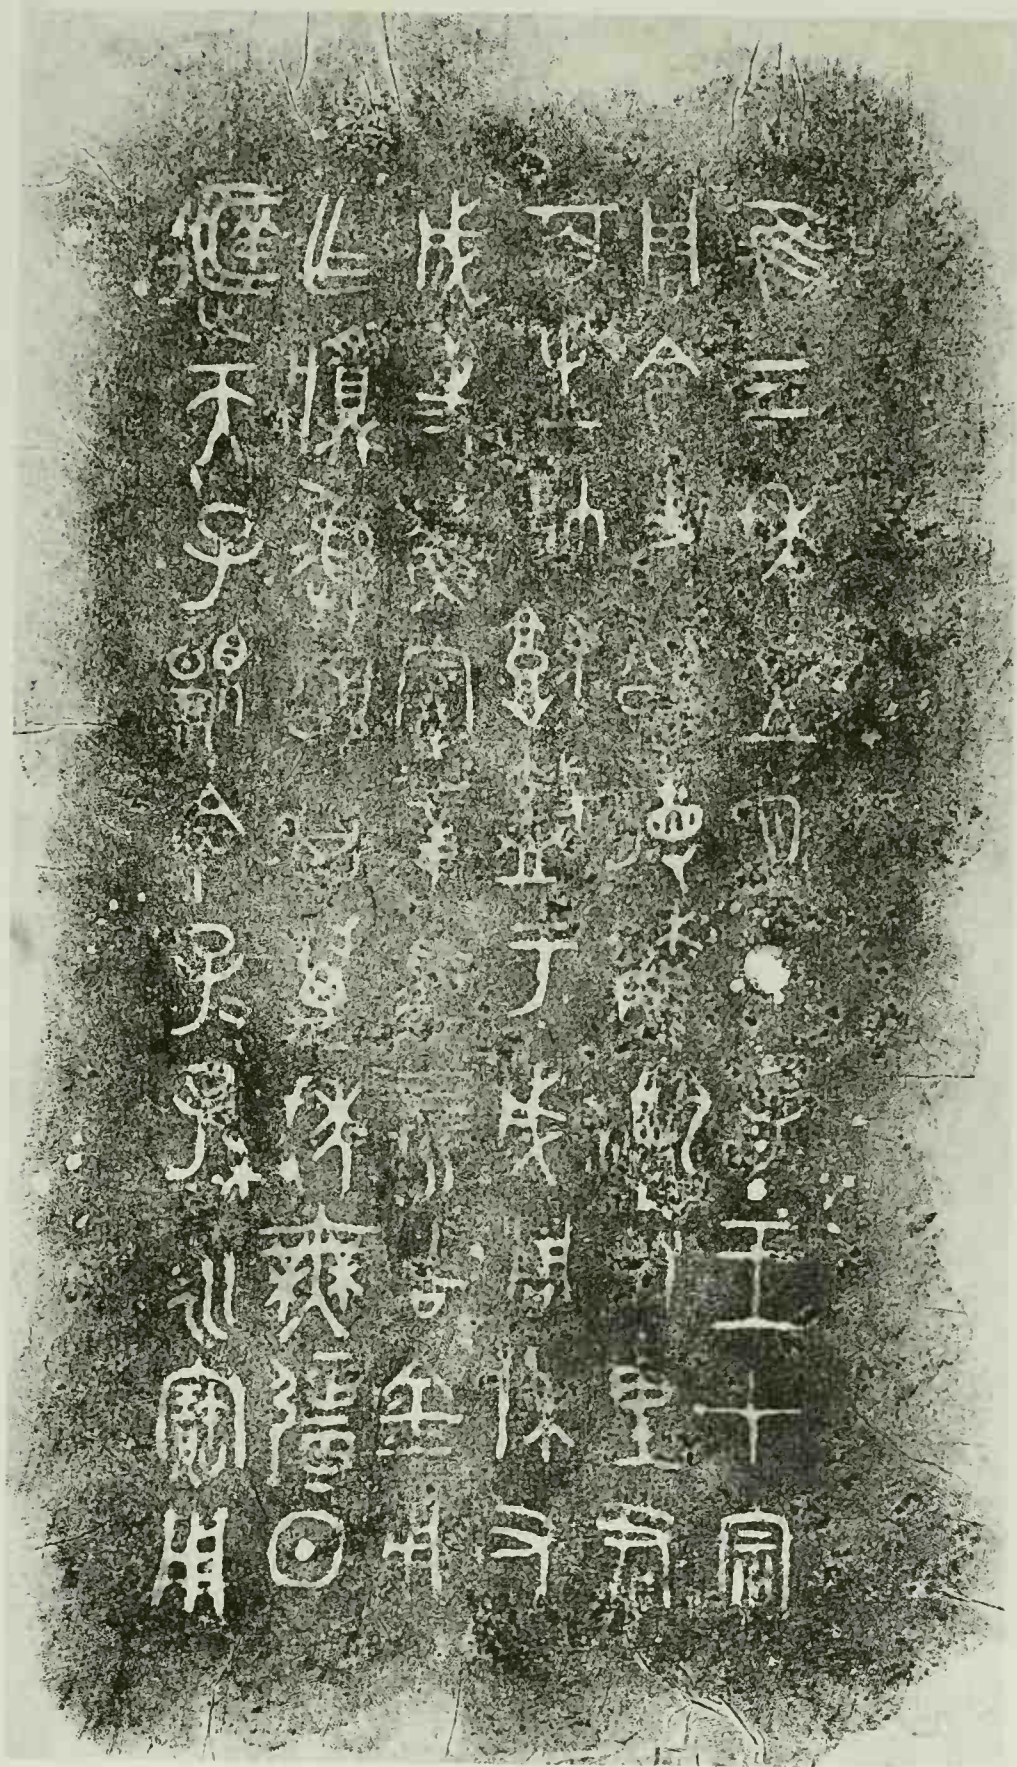 隹三年五月丁巳王才宗
周令史頌省穌友里君
百生帥堣盩于成周休又
成事穌賓章馬四匹吉金用
乍䵼彝頌其萬年無疆日
遲天子顯令子〻孫〻永寶用